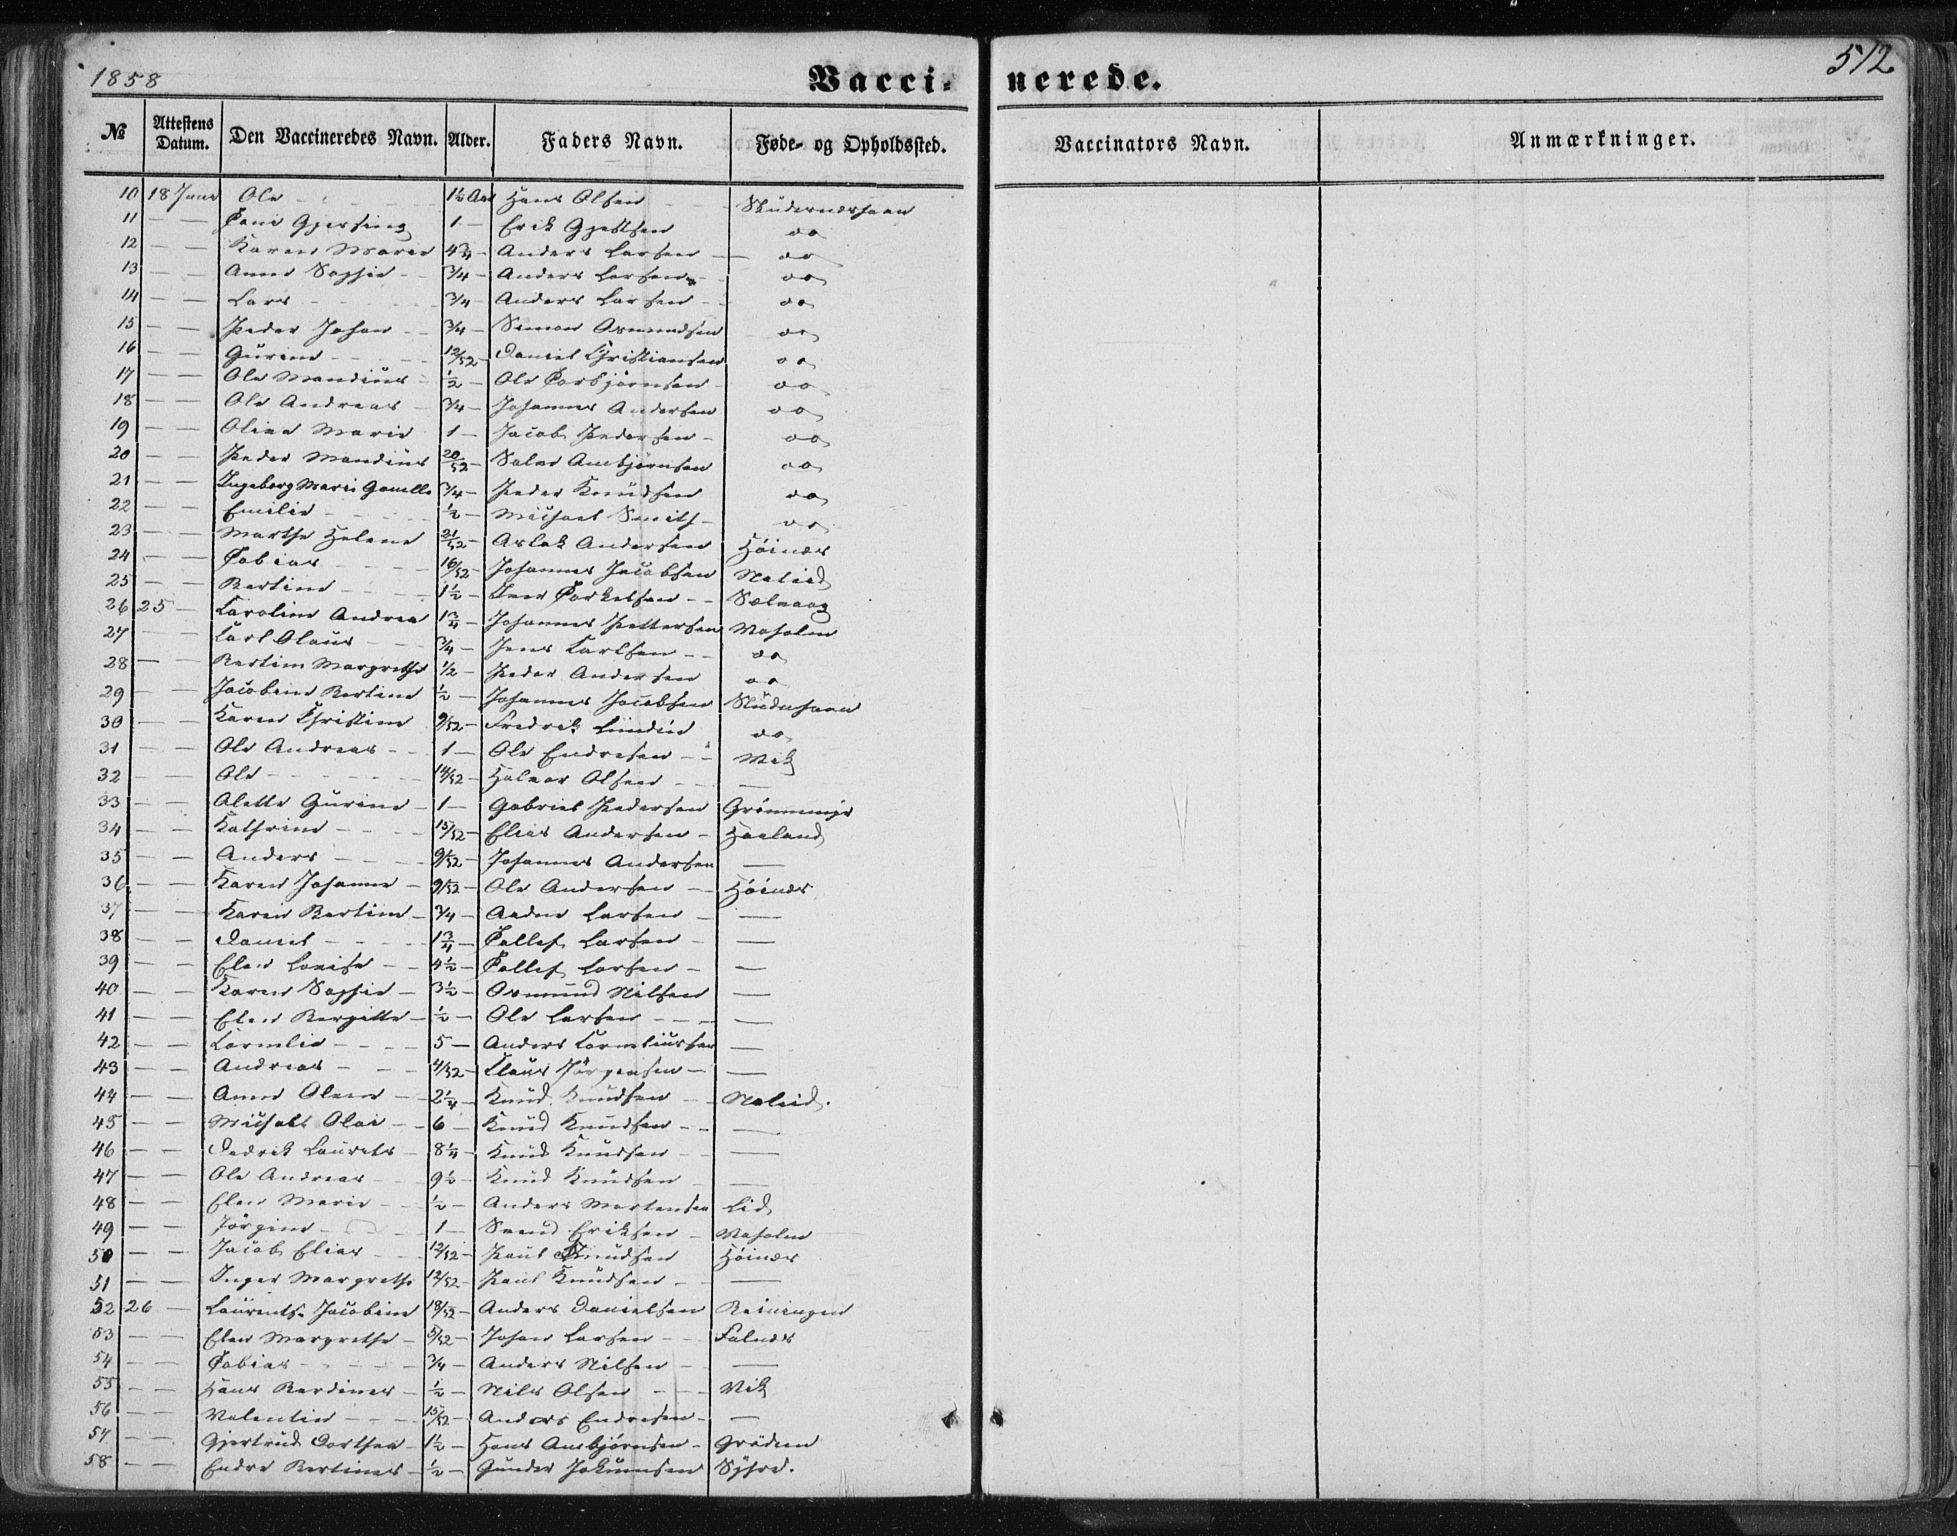 1858 Vacci- nerede. 512
№ Attestens Datum. Den Vaccineredes Navn. Alder. Faders Navn. Føde- og Opholdssted. Vaccinators Navn. Anmærkninger.
10 18 Juni Ole - - 1½ Aar Hans Olsen - - Skudenæshavn
11 — — Gjersine 1 — Erik Gjestsen do
12 — — Karen Marie 4¾ — Anders Larsen — do
13 — — Anne Sophie - - ¾ — Anders Larsen - do
14 — — Lars - - - ¾ — Anders Larsen - - do
15 — — Peder Johan - - ¾ — Simon Osmundsen do
16 — — Gurine - - - 12/52 — Daniel Christiansen do
17 — — Ole Mandius - ½ — Ole Torbjørnsen - do
18 — — Ole Andreas - ¾ — Johannes Andersen do
19 — — Oline Marie 1 — Jacob Pedersen - do
20 — — Peder Mandius 20/52 — Salve Ambjørnsen do
21 — — Ingeborg Marie Gomelle ¾ — Peder Knudsen do
22 — — Emilie - - - ½ — Michael Smith - do
23 — — Marthe Helene 21/52 — Aslak Andersen Høinæs
24 — — Tobias - - - 16/52 — Johannes Jacobsen Nolied
25 — — Bertine - - - 1½ — Iver Torkelsen - - Sælvaag
26 25 — Caroline Andrea 1¾ — Johannes Pettersen Vaholm
27 — — Carl Olaus - - ¾ — Jens Carlsen - - do
28 — — Bertine Margrethe ½ — Peder Andersen do
29 — — Jacobine Bertine ½ — Johannes Jacobsen Skudenhavn
30 — — Karen Christine 9/52 — Fredrik Lundin do
31 — — Ole Andreas - - 1 — Ole Endresen - - Vik
32 — — Ole - - - 14/52 — Halvor Olsen - - —
33 — — Olette Gurine - 1 — Gabriel Pedersen Grønnmyr
34 — — Kathrine - - - 15/52 — Elias Andersen - Haaland
35 — — Anders - - - 9/52 — Johannes Andersen —
36 — — Karen Johanne - 9/52 — Ole Andersen - - Høinæs
37 — — Karen Bertine - ¾ — Aadne Larsen - —
38 — — Daniel - - - 1¾ — Tollef Larsen - —
39 — — Elen Lovise - - 4½ — Tollef Larsen - —
40 — — Karen Sophie - 3½ — Osmund Nilsen —
41 — — Elen Bergitte - ½ — Ole Larsen - - - —
42 — — Cornelia - - - 5 — Anders Corneliussen —
43 — — Andreas - - - 4/52 — Claus Jørgensen - —
44 — — Anne Olene - - 2¼ — Knud Knudsen - - Nolied.
45 — — Michael Olai - - 6 — Knud Knudsen - - —
46 — — Dedrik Laurits - 8¼ — Knud Knudsen - - —
47 — — Ole Andreas - - 9½ — Knud Knudsen - —
48 — — Elen Marie - - ½ — Anders Mortensen Lid
49 — — Jørgine - - 1 — Svend Eriksen - Vaholm
50 — — Jacob Elias - - 12/52 — Poul Knudsen Høinæs
51 — — Inger Margrethe 12/52 — Poul Knudsen - - —
52 26 — Laurentse Jacobine 18/52 — Anders Danielsen Reiningen
53 — — Elen Margrethe - 5/52 — Johan Larsen - - Falnæs
54 — — Tobias - - - ¾ — Anders Nilsen - - —
55 — — Hans Berdines - ½ — Nils Olsen - - - Vik
56 — — Valentin - - - 15/52 — Anders Endresen - —
57 — — Gjertrud Dorthea - 1½ — Hans Ambjørnsen - Grødem
58 — — Endre Bertines - ½ — Gunder Jokumsen Syfre.